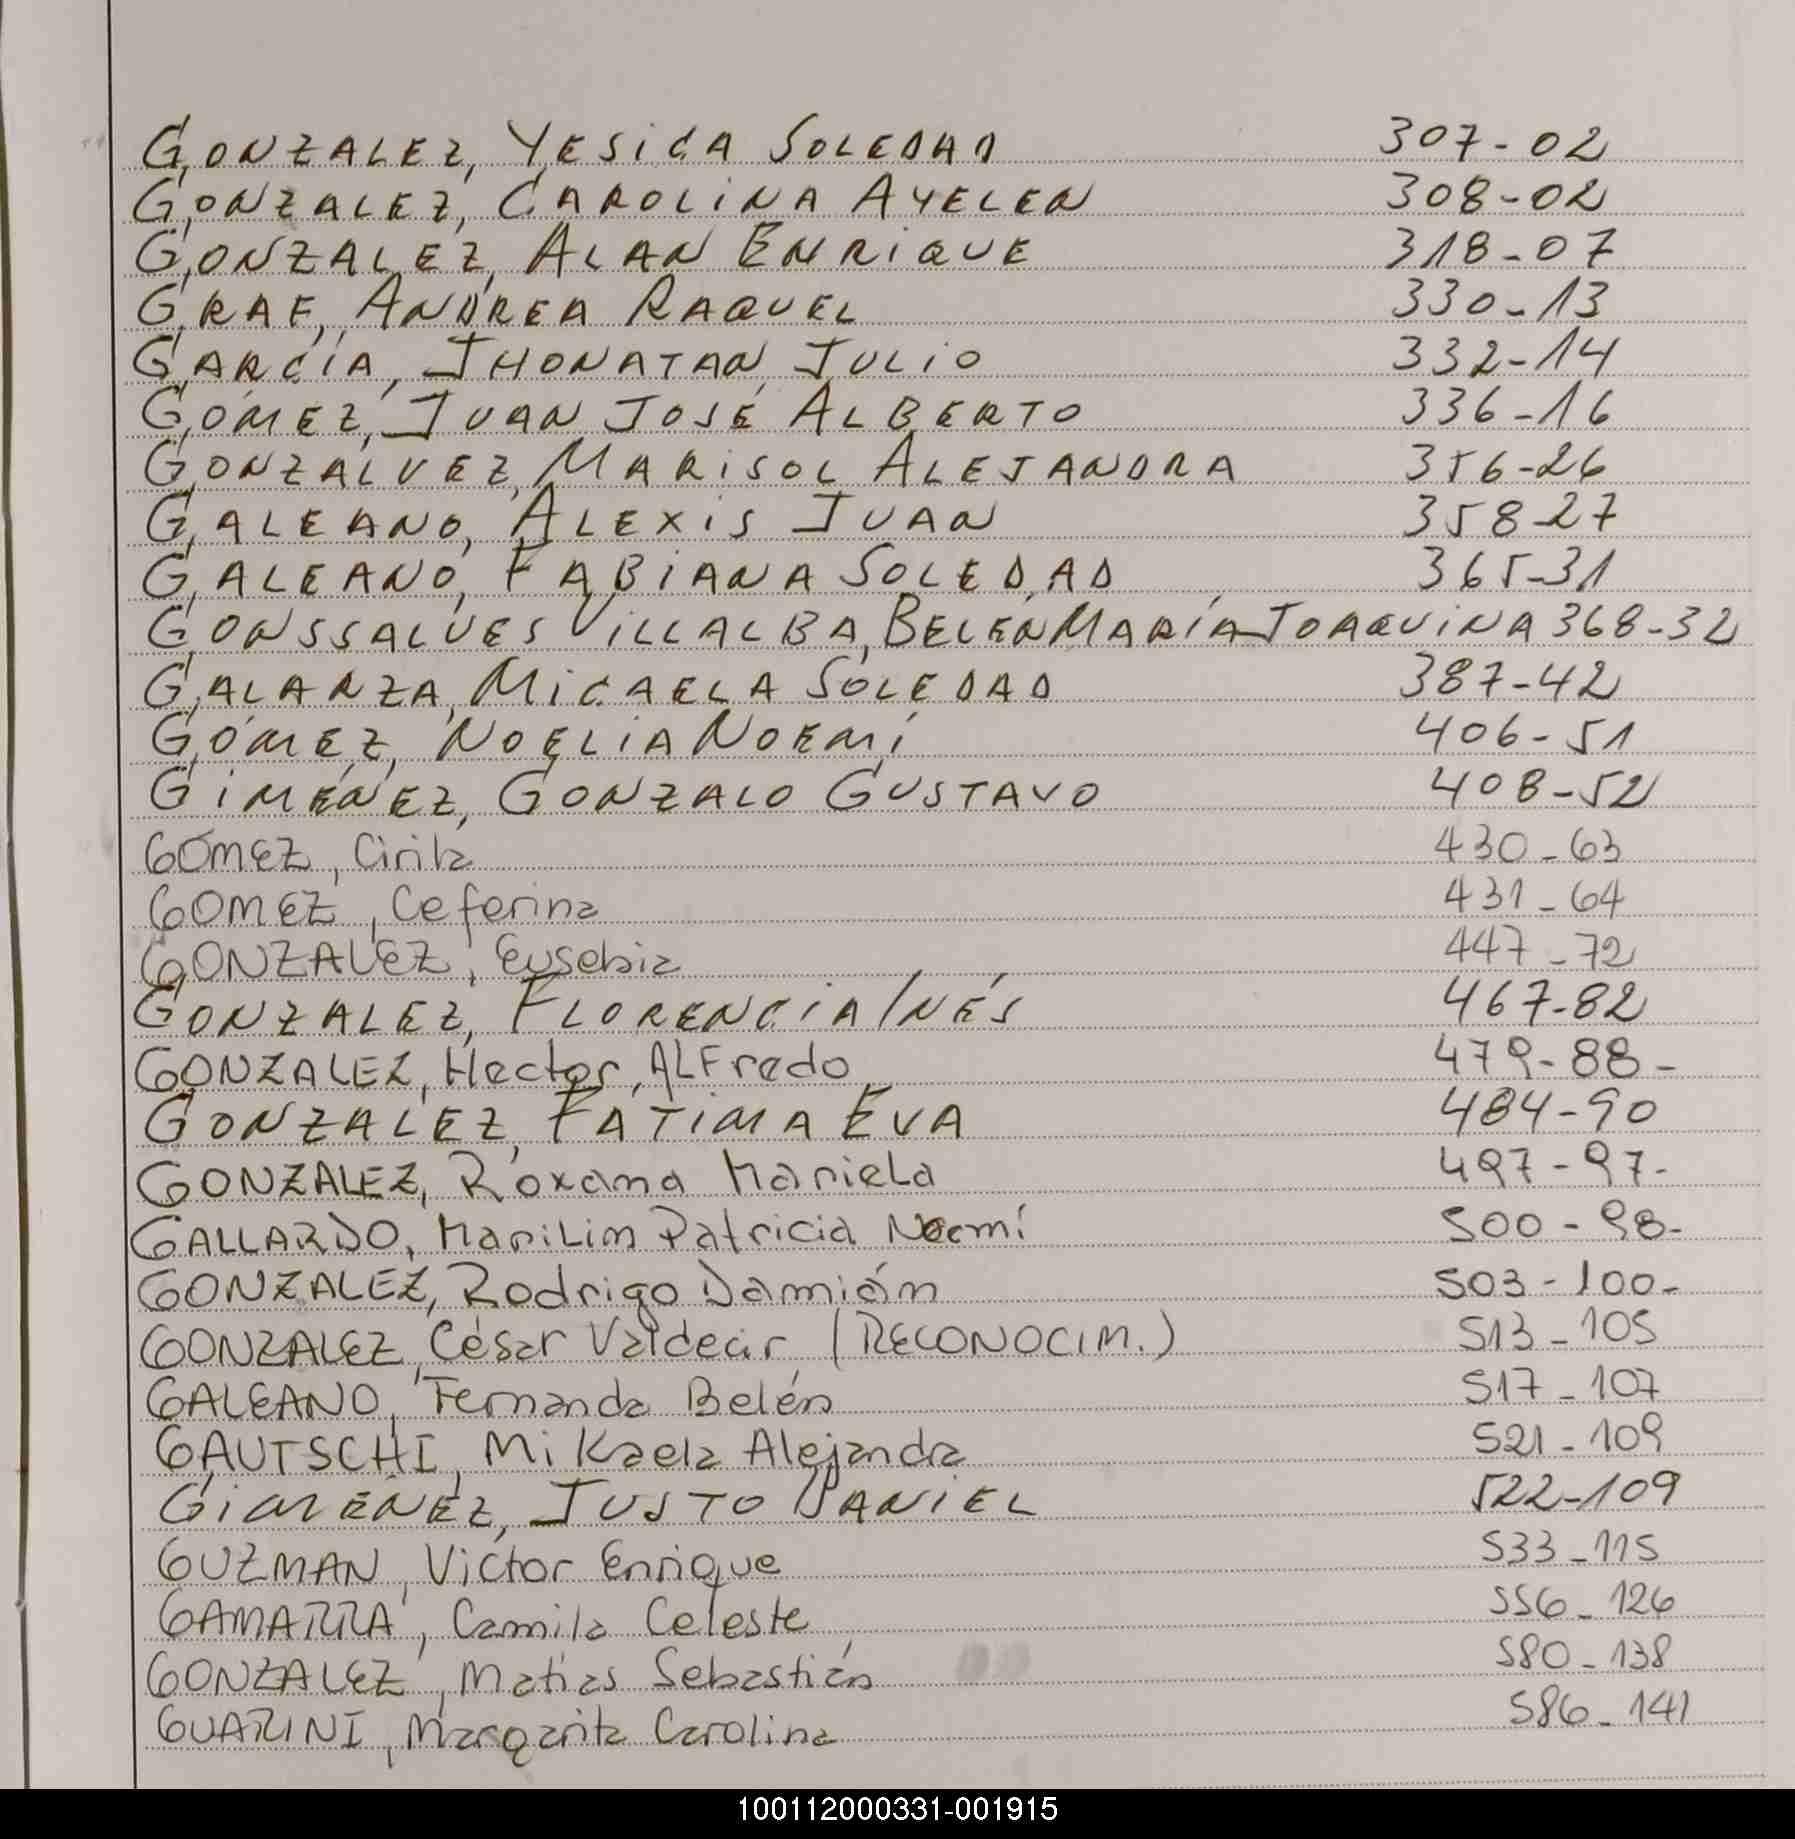 GONZALEZ, YESICA SOLEDAD 307-02
GONZALEZ, CAROLINA AYELEN 308-02
GONZALEZ, ALAN ENRIQUE 318-07
GRAF, ANDREA RAQUEL 330-13
GARCÍA, JHONATAN JULIO 332-14
GÓMEZ, JUAN JOSÉ ALBERTO 336-16
GONZALVEZ, MARISOL ALEJANDRA 356-26
GALEANO, ALEXIS JUAN 358-27
GALEANO, FABIANA SOLEDAD 365-31
GONSSALVES VILLALBA, BELÉN MARÍA JOAQUINA 368-32
GALARZA, MICAELA SOLEDAD 387-42
GÓMEZ, NOELIA NOEMÍ 406-51
GIMÉNEZ, GONZALO GUSTAVO 408-52
GÓMEZ, Cirila 430-63
GOMEZ, Ceferina 431-64
GONZALEZ, Eusebia 447-72
GONZALEZ, FLORENCIA INÉS 467-82
GONZALEZ, Hector, ALFredo 479-88-
GONZALEZ, FÁTIMA EVA 484-90
GONZALEZ, Roxana Mariela 497-97-
GALLARDO, MariLim Patricia Noemí 500-98-
GONZALEZ, Rodrigo Damián 503-100-
GONZALEZ, César Valdecir (RECONOCIM.) 513-105
GALEANO, Fernanda Belén 517-107
GAUTSCHI, Mikaela Alejandra 521-109
GIMÉNEZ, JUSTO DANIEL 522-109
GUZMAN, Victor Enrique 533-115
GAMARRA, Camila Celeste 556-126
GONZALEZ, Matias Sebastián 580-138
GUARINI, Margarita Carolina 586-141
100112000331-001915